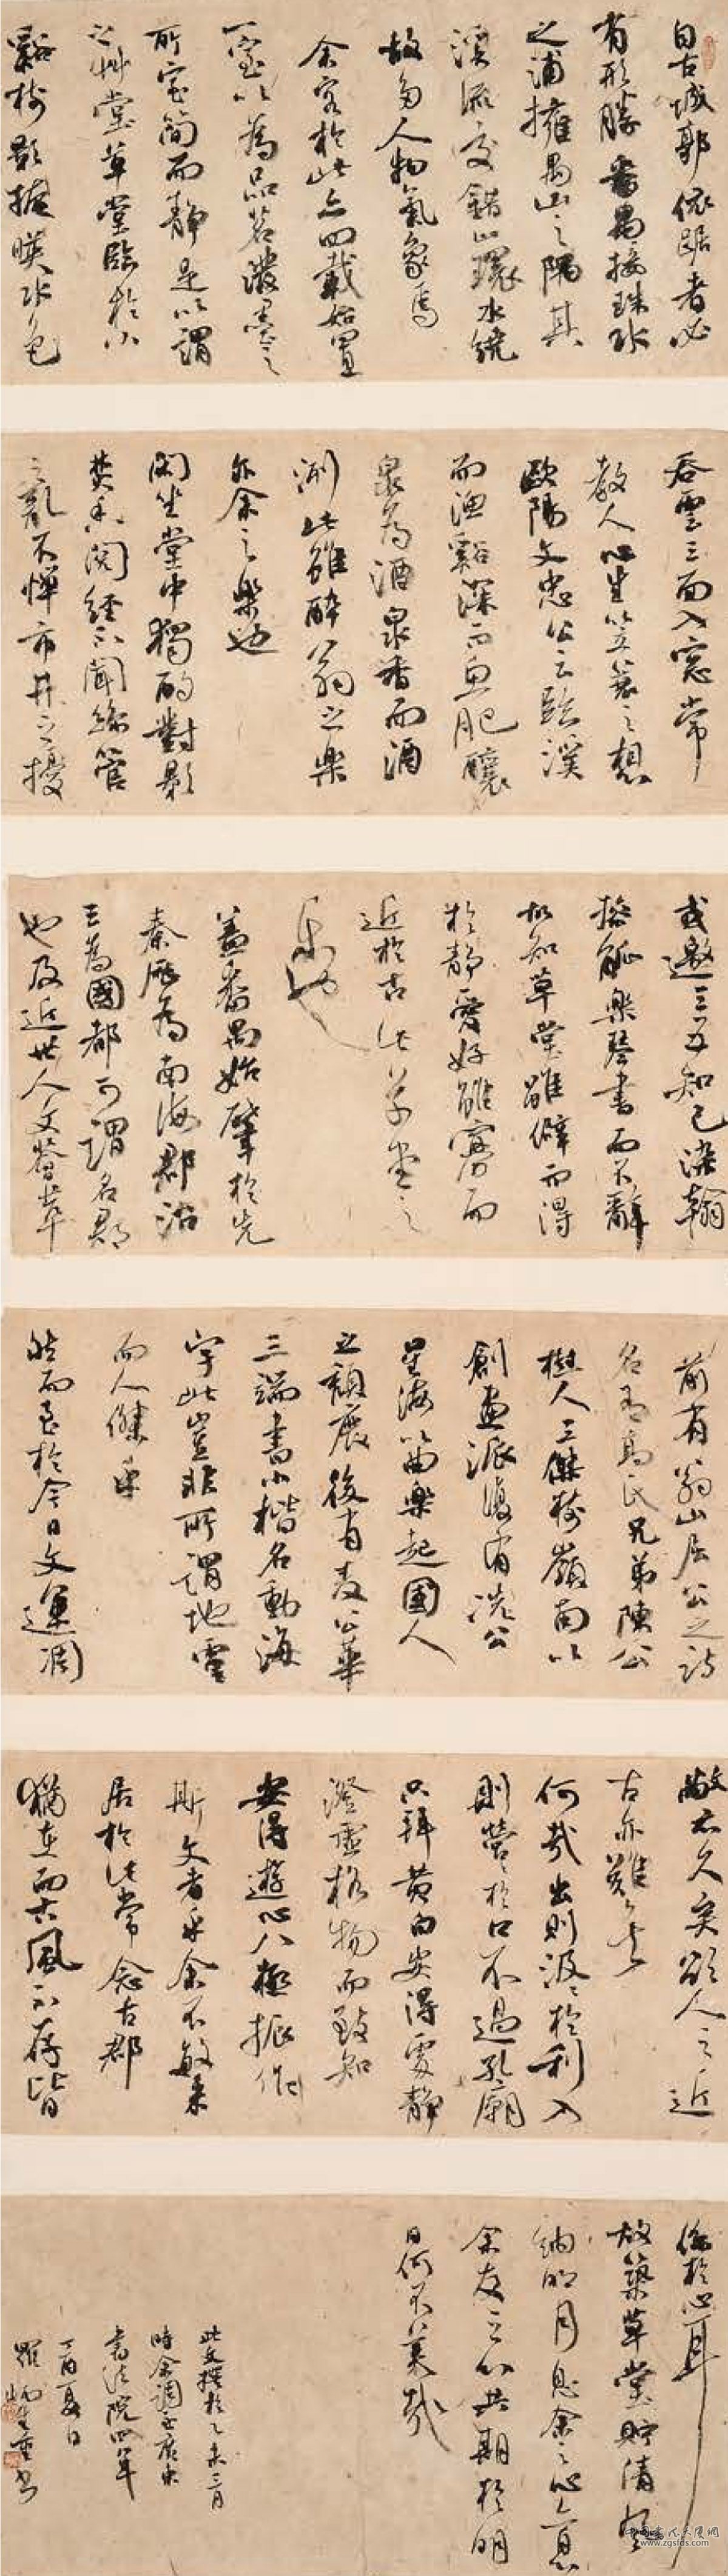 自古城郭依踞者必
有形勝番禺接珠水
之浦擁禺山之隅其
溪流交錯山環水繞
故多人物氣象焉
余客於此上四載始置
一室以為品茗潑墨之
所室簡而靜是以謂
之艸堂草堂臨於小
谿樹影掩映水色
吞雲三面入窓常
教人心生笠蓑之想
歐陽文忠公云臨溪
而漁谿深而魚肥釀
泉為酒泉香而酒
洌此雖醉翁之樂
亦余之樂也
閑坐堂中獨酌對影
焚香閱經不聞絲管
之亂不憚市井之擾
或邀三五知己染翰
操觚樂琴書而不辭
故知草堂雖僻而得
於靜愛好雖寡而
近於古此草堂之
樂也
蓋番禺始肇於先
秦歷為南海郡治
三為國都可謂名郡
也及近世人文薈萃
前有翁山屈公之詩
名有高氏兄弟陳公
樹人三傑於嶺南以
創畫派復有冼公
星海以曲樂起國人
之頹廢後有麥公華
三端書小楷名動海
宇此豈非所謂地靈
而人傑乎
然而至於今日文運凋
敝亦久矣欲人之近
古亦難矣
何哉出則汲々於利入
則營々於口不過孔廟
只拜黄白安得虛靜
澄虛格物而致知
安得遊心八極振作
斯文者乎余不敏來
居於此常念古郡
猶在而古風不存皆
傷於心耳
故築草堂貯清風
納明月息余之心亦息
余友之心共期於明
日何不美哉
此文撰於乙未三月
時余調至廣東
書法院四年
丁酉夏日
羅炳生重書
www.zgsfds.com